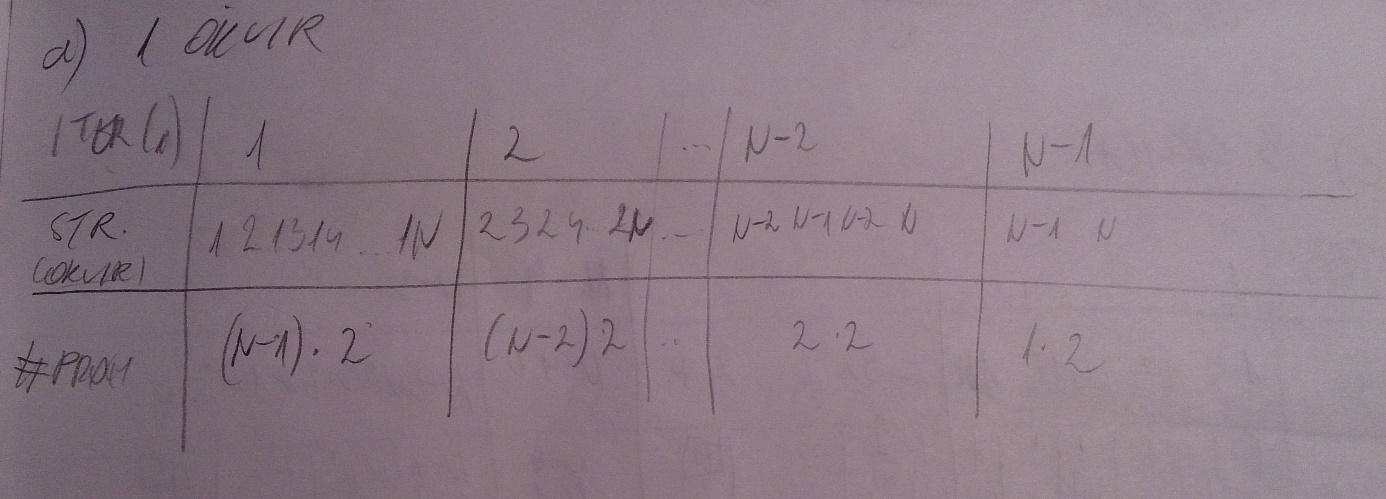 a) 1 OKVIR
ITER(1) 1 2 ... N-2 N-1
STR. 1 2 1 3 1 4 ... 1N 2 3 2 4 .. 2N ... N-2 N-1 N-2 N N-1 N
(OKVIR)
#PROM (N-1)·2 (N-2)2 .. 2·2 1·2